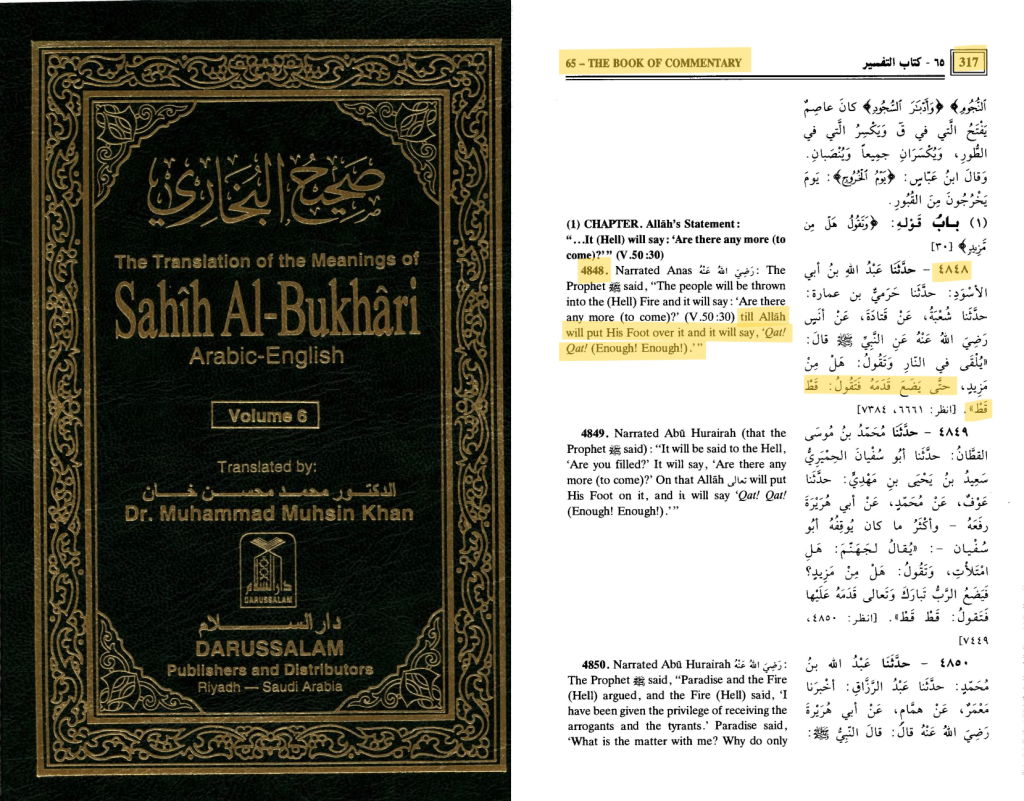 صَحِيحُ البُخَارِي
The Translation of the Meanings of
Sahîh Al-Bukhâri
Arabic-English
Volume 6
Translated by:
الدكتور محمد محسن خان
Dr. Muhammad Muhsin Khan
دار السلام
DARUSSALAM
دار السلام
DARUSSALAM
Publishers and Distributors
Riyadh — Saudi Arabia
65 – THE BOOK OF COMMENTARY
٦٥ - كتاب التفسير
317
(1) CHAPTER. Allâh's Statement:
“...It (Hell) will say: ‘Are there any more (to
come)?’” (V.50:30)
4848. Narrated Anas رَضِيَ اللهُ عَنْهُ: The
Prophet ﷺ said, “The people will be thrown
into the (Hell) Fire and it will say: ‘Are there
any more (to come)?’ (V.50:30) till Allâh
will put His Foot over it and it will say, ‘Qat!
Qat! (Enough! Enough!).’”
4849. Narrated Abû Hurairah (that the
Prophet ﷺ said): “It will be said to the Hell,
‘Are you filled?’ It will say, ‘Are there any
more (to come)?’ On that Allâh تعالى will put
His Foot on it, and it will say ‘Qat! Qat!
(Enough! Enough!).’”
4850. Narrated Abû Hurairah رَضِيَ اللهُ عَنْهُ:
The Prophet ﷺ said, “Paradise and the Fire
(Hell) argued, and the Fire (Hell) said, ‘I
have been given the privilege of receiving the
arrogants and the tyrants.’ Paradise said,
‘What is the matter with me? Why do only
ٱلنُّجُومِ﴾ ﴿وَأَدْبَٰرَ ٱلسُّجُودِ﴾ كانَ عاصِمٌ
يَفْتَحُ الَّتي في قَ وَيَكْسِرُ الَّتي في
الطُّورِ، وَيُكْسَرَانِ جَمِيعاً وَيُنْصَبانِ.
وَقالَ ابنُ عَبَّاسٍ: ﴿يَوْمُ الْخُرُوجِ﴾: يَومَ
يَخْرُجُونَ مِنَ القُبُورِ.
(١) بابُ قَوْلِهِ: ﴿وَتَقُولُ هَلْ مِن
مَّزِيدٍ﴾ [٣٠]
٤٨٤٨ - حدَّثَنَا عَبْدُ اللهِ بنُ أبي
الأَسْوَدِ: حدَّثَنا حَرَمِيُّ بن عمارة:
حدَّثَنا شُعْبَةُ، عَنْ قَتَادَةَ، عَنْ أنَسٍ
رَضِيَ اللهُ عَنْهُ عَنِ النَّبِيِّ ﷺ قالَ:
«يُلْقَى في النَّارِ وَتَقُولُ: هَلْ مِنْ
مَزِيدٍ، حتَّى يَضَعَ قَدَمَهُ فَتَقُولُ: قَطْ
قَطْ». [انظر: ٦٦٦١، ٧٣٨٤]
٤٨٤٩ - حدَّثَنَا مُحَمَّدُ بنُ مُوسَى
القطَّانُ: حدَّثَنا أبُو سُفْيَانَ الحِمْيَرِيُّ
سَعِيدُ بنُ يَحْيَى بنِ مَهْدِيٍّ: حدَّثَنا
عَوْفٌ، عَنْ مُحَمَّدٍ، عَنْ أبي هُرَيْرَةَ
رَفَعَهُ - وأكْثَرُ ما كان يُوقِفُهُ أبُو
سُفْيان -: «يُقالُ لجَهَنَّمَ: هَلِ
امْتَلأْتِ، وَتَقُولُ: هَلْ مِنْ مَزِيدٍ؟
فَيَضَعُ الرَّبُّ تَبارَكَ وَتَعالى قَدَمَهُ عَلَيْها
فَتَقولُ: قَطْ قَطْ». [انظر: ٤٨٥٠،
٧٤٤٩]
٤٨٥٠ - حدَّثَنا عَبْدُ الله بنُ
مُحَمَّدٍ: حدَّثَنا عَبْدُ الرَّزَّاقِ: أخْبَرَنا
مَعْمَرٌ، عَنْ هَمَّامٍ، عَنْ أبي هُرَيْرَةَ
رَضِيَ اللهُ عَنْهُ قالَ: قالَ النَّبِيُّ ﷺ: